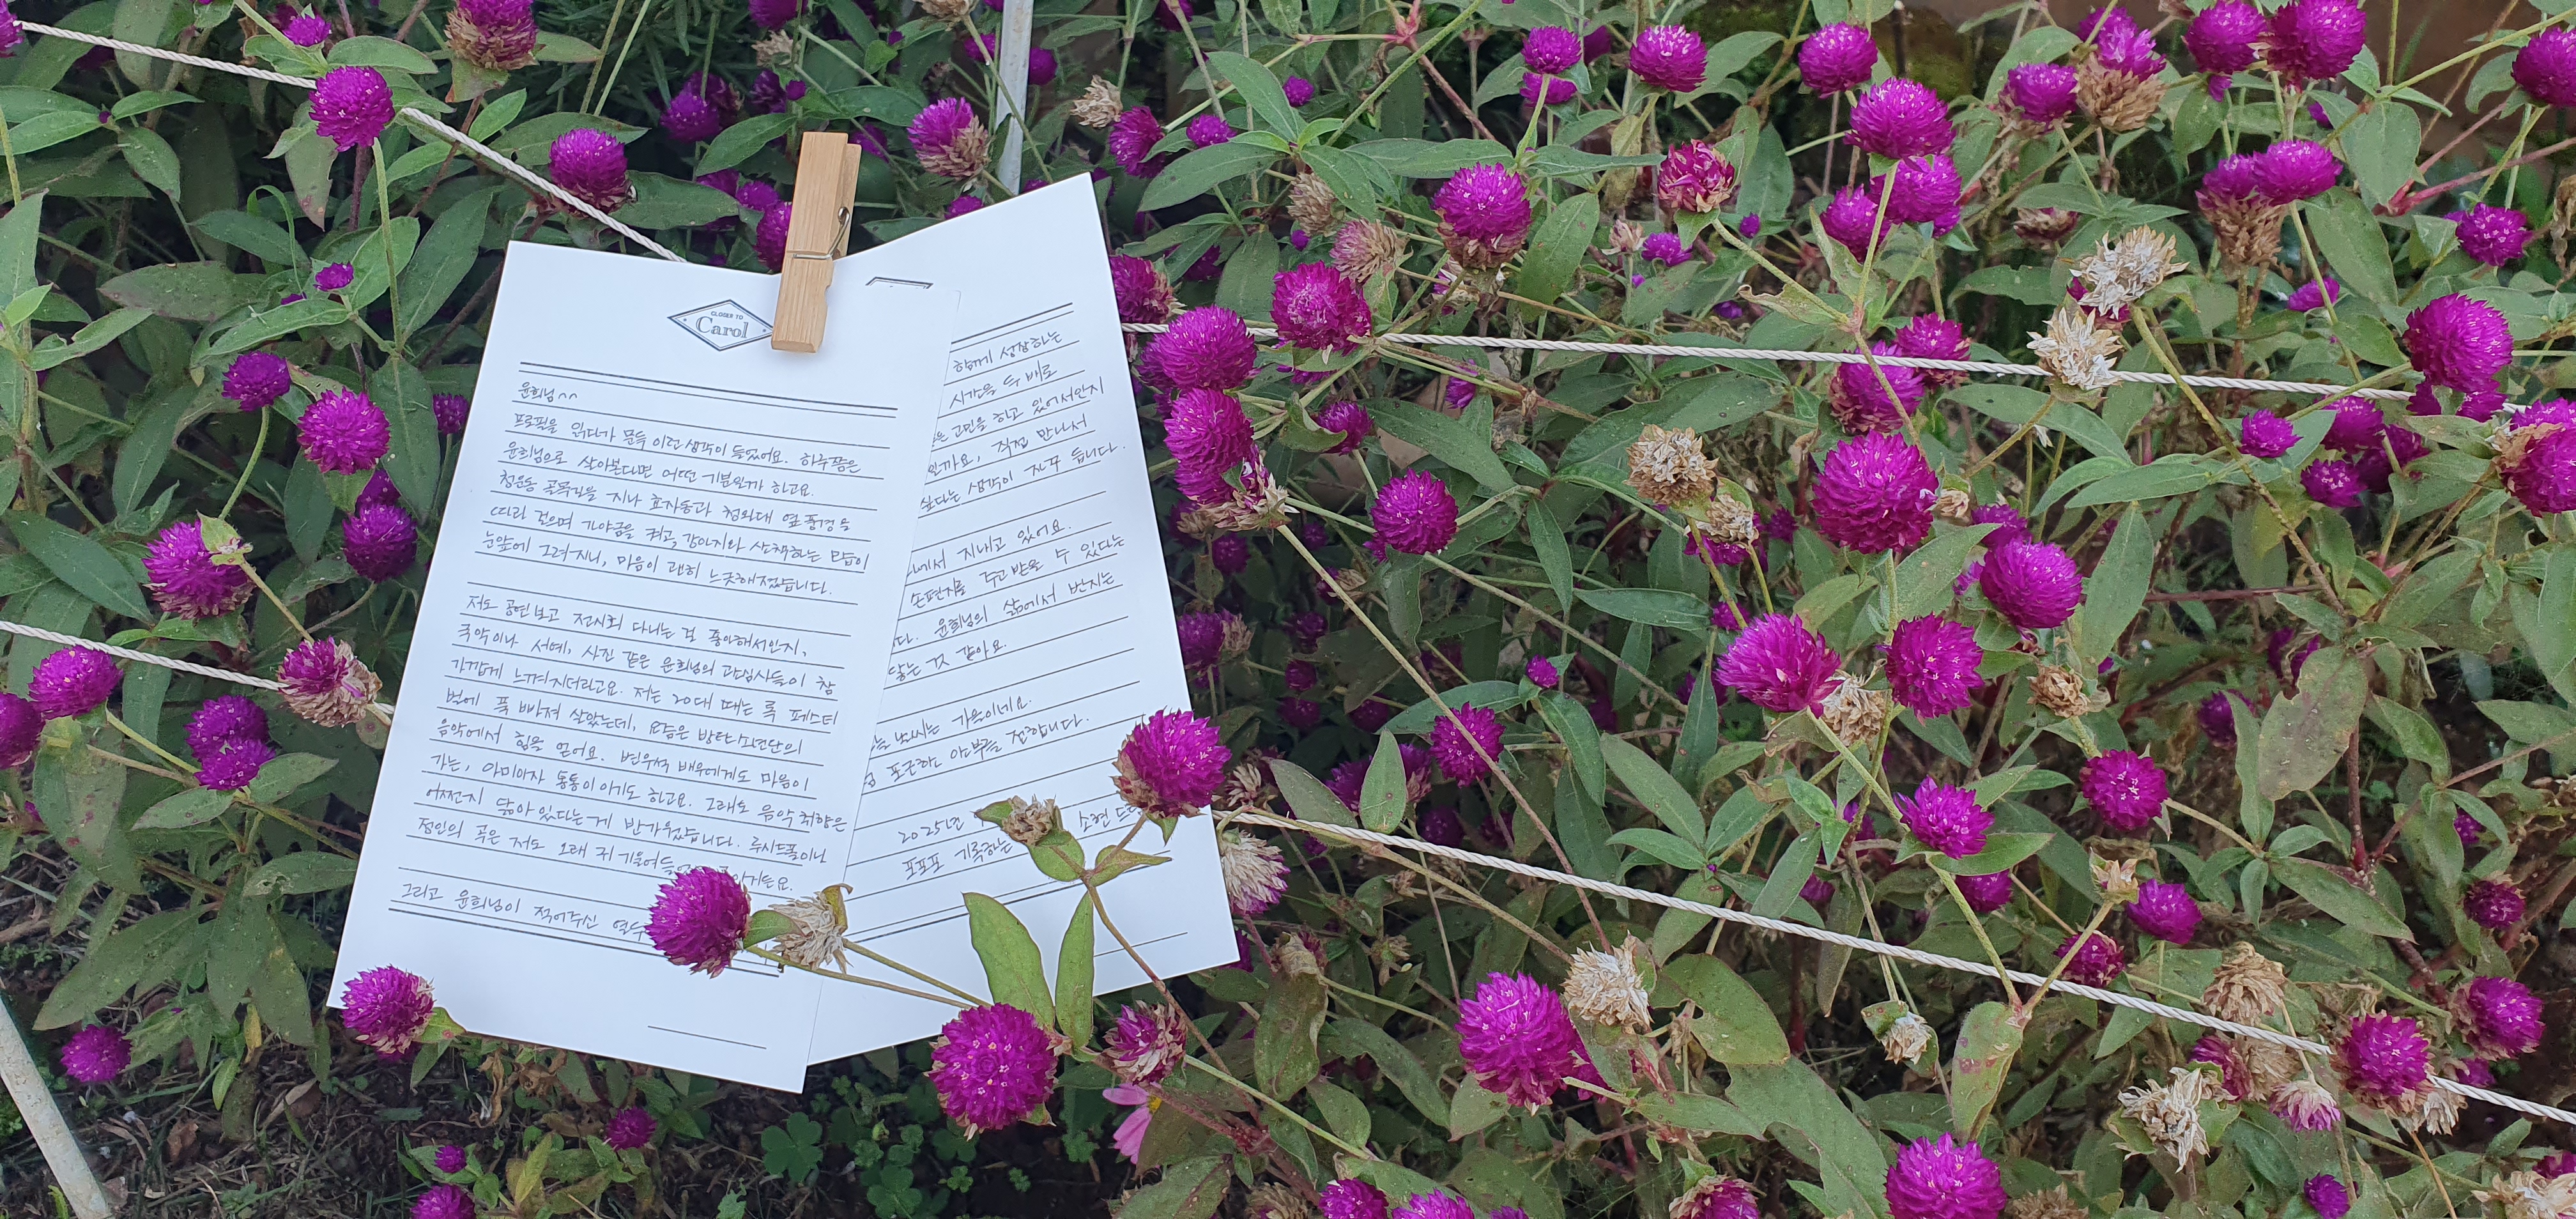 CLOSER TO
Carol
윤희님^^
프로필을 읽다가 문득 이런 생각이 들었어요. 하루쯤은
윤희님으로 살아본다면 어떤 기분일까 하고요.
청운동 골목길을 지나 효자동과 청와대 옆 풍경을
따라 걸으며 가야금을 켜고, 강아지와 산책하는 모습이
눈앞에 그려지니, 마음이 괜히 느긋해졌습니다.
저도 공연 보고 전시회 다니는 걸 좋아해서인지,
국악이나 서예, 사진 같은 윤희님의 관심사들이 참
가깝게 느껴지더라고요. 저는 20대 때는 록 페스티
벌에 푹 빠져 살았는데, 요즘은 방탄소년단의
음악에서 힘을 얻어요. 변우석 배우에게도 마음이
가는, 아미이자 통통이이기도 하고요. 그래도 음악 취향은
어쩐지 닮아 있다는 게 반가웠습니다. 루시드폴이나
정인의 곡은 저도 오래 귀 기울여
그리고 윤희님이 적어주신
함께 성장하는
시간을 두 배로
고민을 하고 있어서인지
직접 만나서
싶다는 생각이 자꾸 듭니다.
에서 지내고 있어요.
손편지를 주고 받을 수 있다는
다. 윤희님의 삶에서 번지는
닿는 것 같아요.
날씨는 가을이네요.
포근하 안부를 전합니다.
2025년
소현 드림
포포포 기록하는